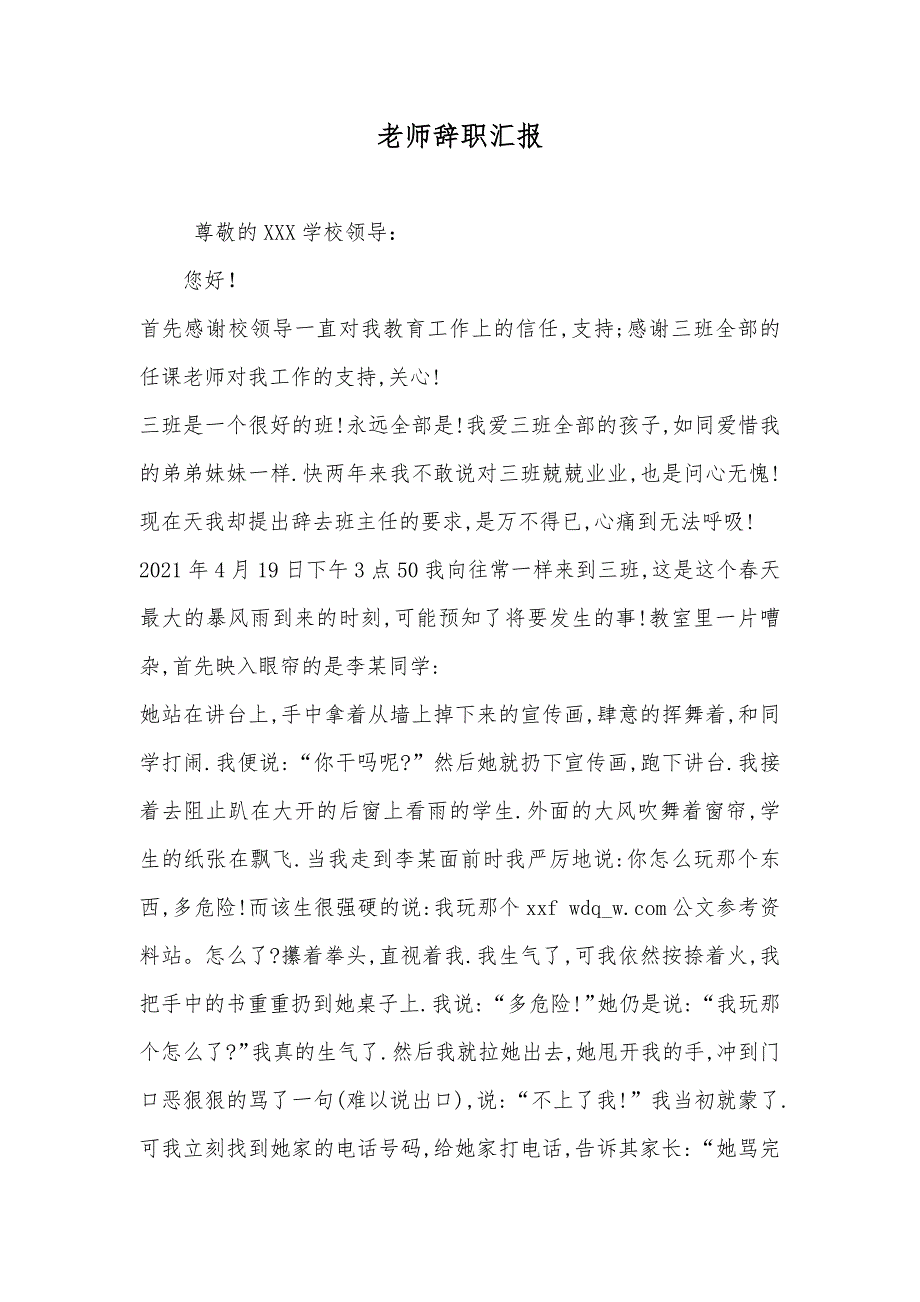 老师辞职汇报
尊敬的XXX学校领导:
您好!
首先感谢校领导一直对我教育工作上的信任,支持;感谢三班全部的
任课老师对我工作的支持,关心!
三班是一个很好的班!永远全部是!我爱三班全部的孩子,如同爱惜我
的弟弟妹妹一样.快两年来我不敢说对三班兢兢业业,也是问心无愧!
现在天我却提出辞去班主任的要求,是万不得已,心痛到无法呼吸!
2021年4月19日下午3点50我向往常一样来到三班,这是这个春天
最大的暴风雨到来的时刻,可能预知了将要发生的事!教室里一片嘈
杂,首先映入眼帘的是李某同学:
她站在讲台上,手中拿着从墙上掉下来的宣传画,肆意的挥舞着,和同
学打闹.我便说:“你干吗呢?”然后她就扔下宣传画,跑下讲台.我接
着去阻止趴在大开的后窗上看雨的学生.外面的大风吹舞着窗帘,学
生的纸张在飘飞.当我走到李某面前时我严厉地说:你怎么玩那个东
西,多危险!而该生很强硬的说:我玩那个xxf wdq_w.com公文参考资
料站。怎么了?攥着拳头,直视着我.我生气了,可我依然按捺着火,我
把手中的书重重扔到她桌子上.我说:“多危险!”她仍是说:“我玩那
个怎么了?”我真的生气了.然后我就拉她出去,她甩开我的手,冲到门
口恶狠狠的骂了一句(难以说出口),说:“不上了我!”我当初就蒙了.
可我立刻找到她家的电话号码,给她家打电话,告诉其家长:“她骂完